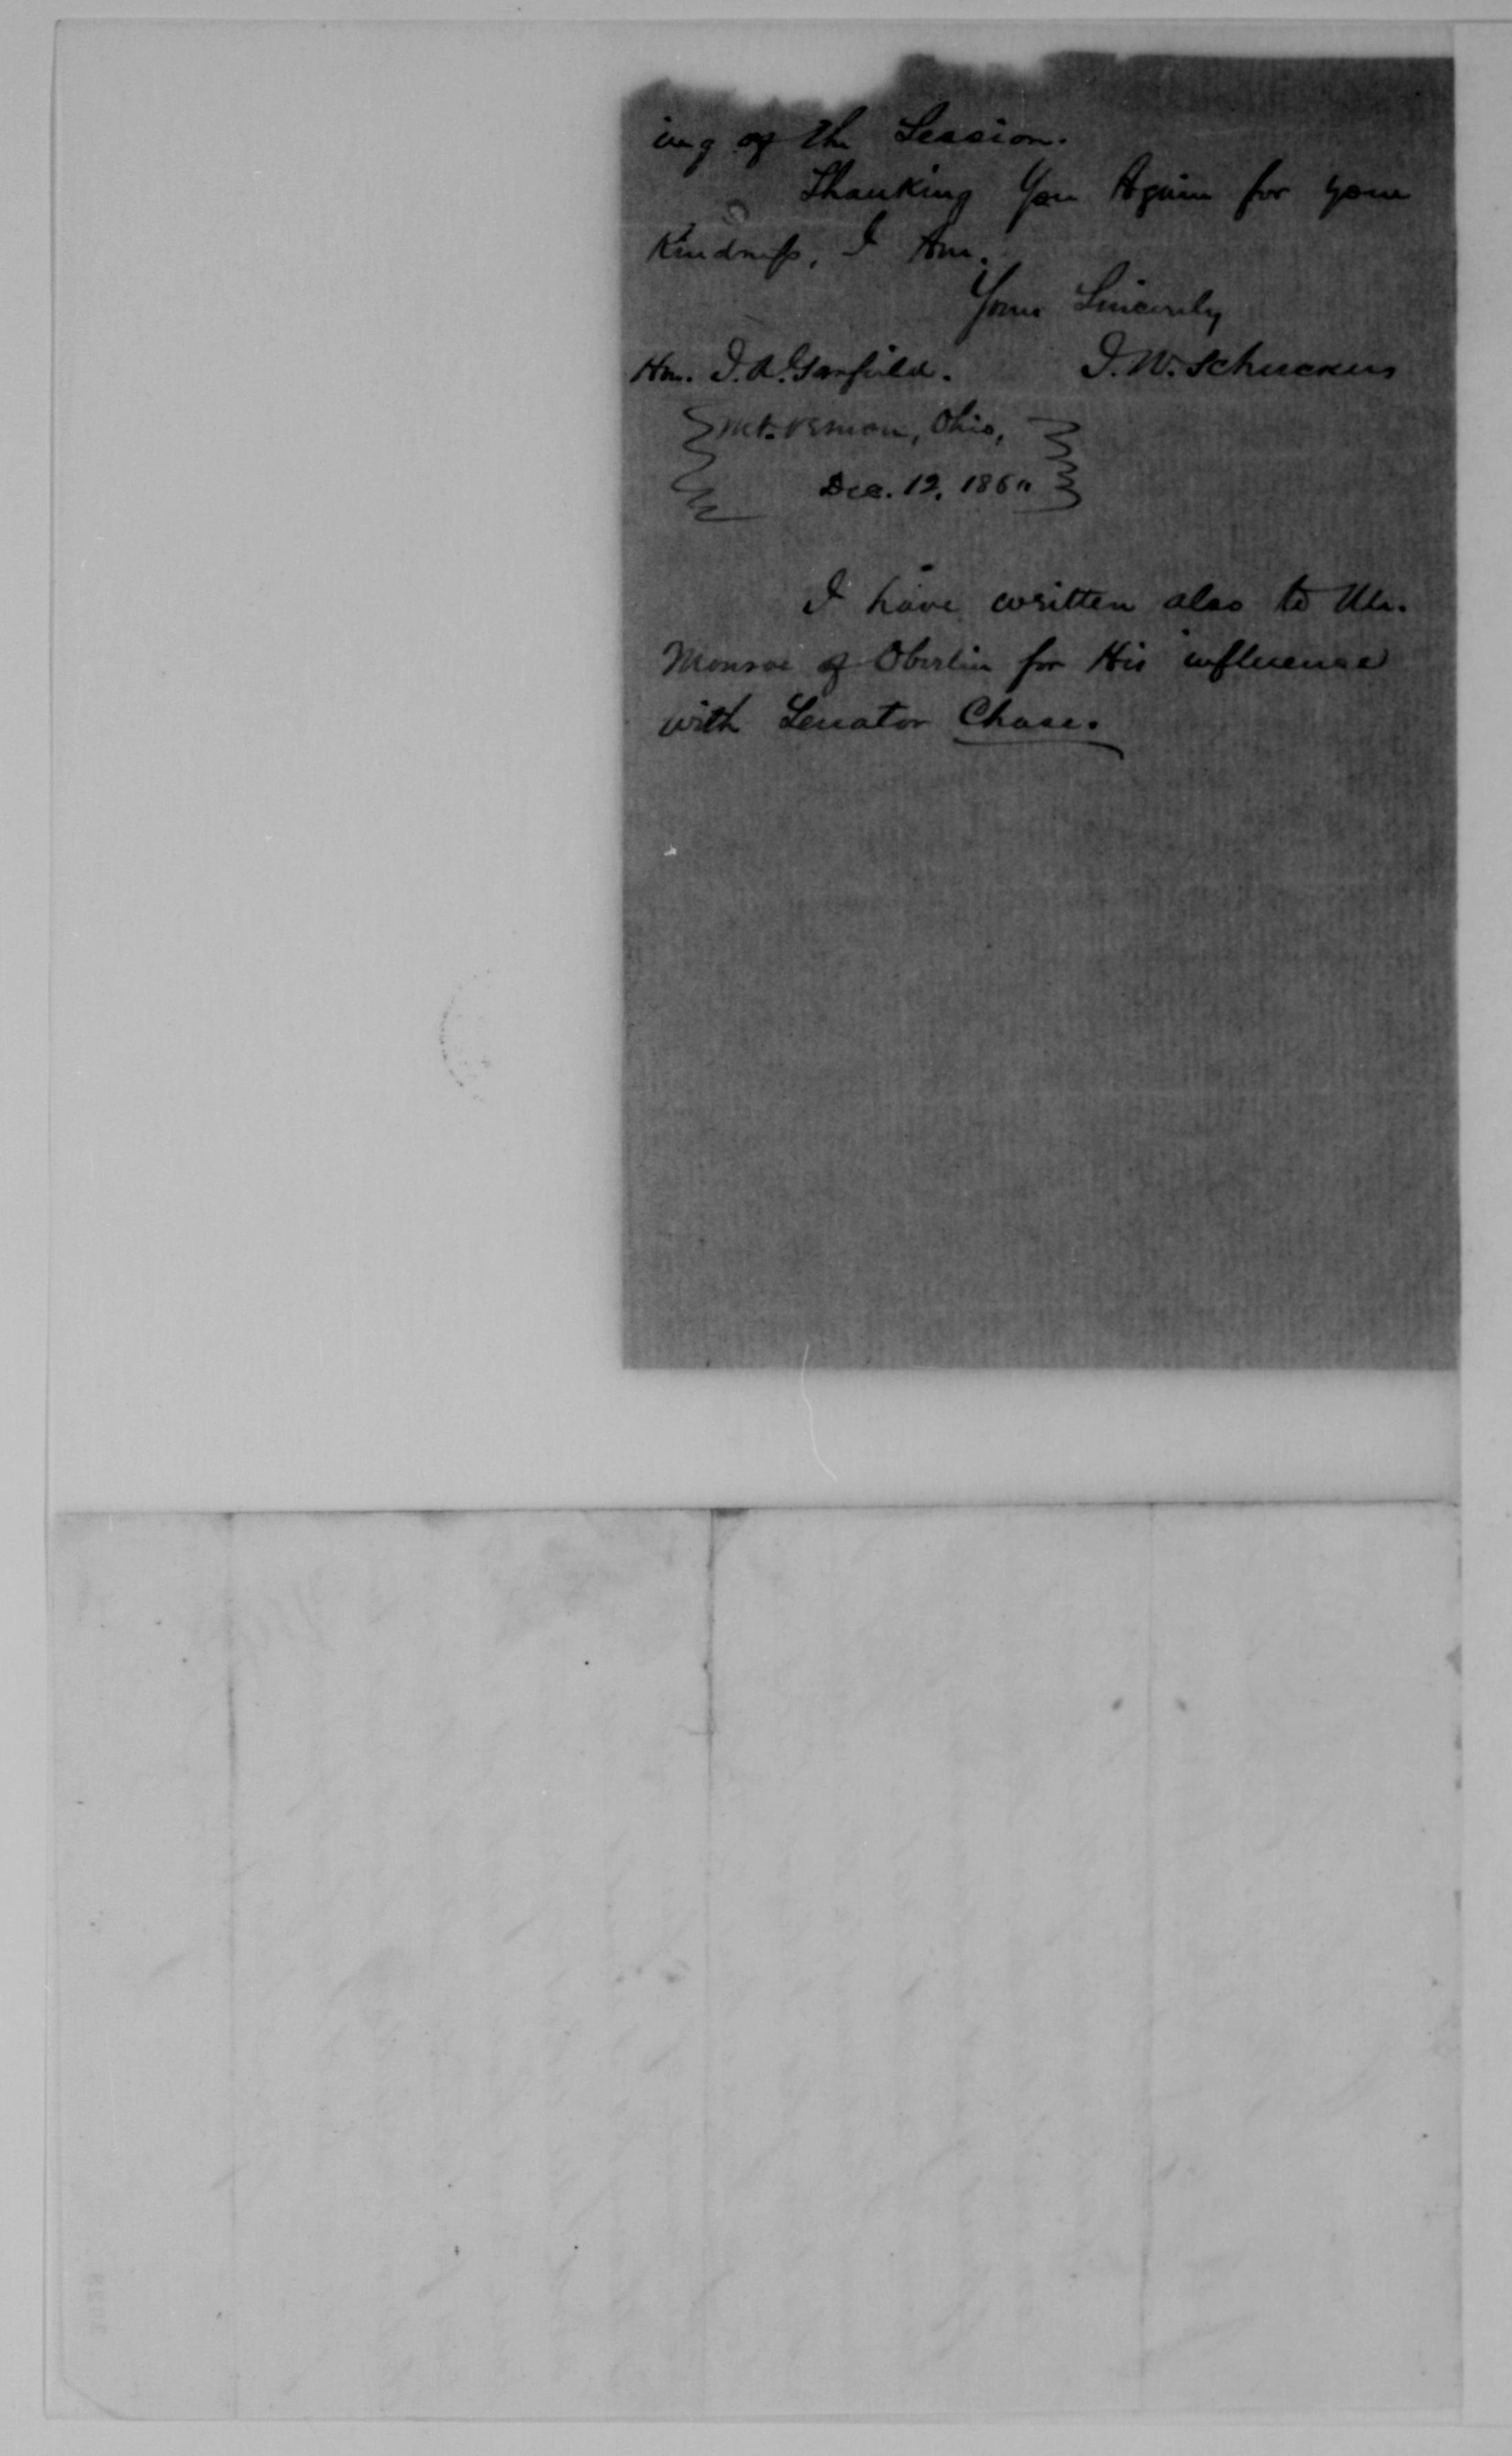 ing of the Session.
Thanking You Again for your
Kindness, I Am.
Yours Sincerely
Hon. J. A. Garfield. J. W. Schuckers
Mt. Vernon, Ohio,
Dec. 12, 1860
I have written also to Mr.
Monroe of Oberlin for His influence
with Senator Chase.